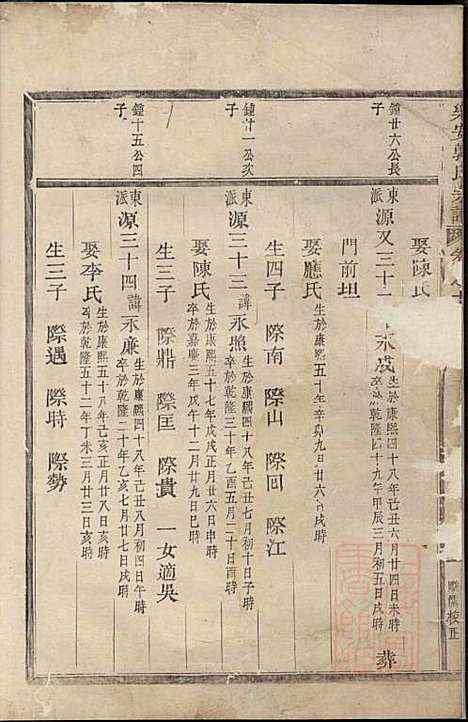 娶陳氏
鍾廿六公長子
東派 源又三十一 永茂 生於康熙四十八年己丑六月廿四日未時 卒於乾隆四十九年甲辰三月初五日戌時 葬
門前坦
娶應氏 生於康熙五十年辛卯九月廿六日戌時
生四子 際南 際山 際回 際江
鍾廿一公次子
東派 源三十三 諱永照 生於康熙四十八年己丑七月初十日子時 卒於乾隆三十年乙酉五月二十日酉時
娶陳氏 生於康熙五十七年戊戌正月廿六日申時 卒於嘉慶三年戊午十二月廿九日巳時
生三子 際鼎 際匡 際貴 一女適吳
鍾十五公四子
東派 源三十四 諱永廉 生於康熙四十八年己丑八月初四日午時 卒於乾隆二十年乙亥七月廿七日戌時
娶李氏 生於康熙五十八年己亥正月廿八日亥時 卒於乾隆五十二年丁未三月廿三日亥時
生三子 際遇 際時 際勢